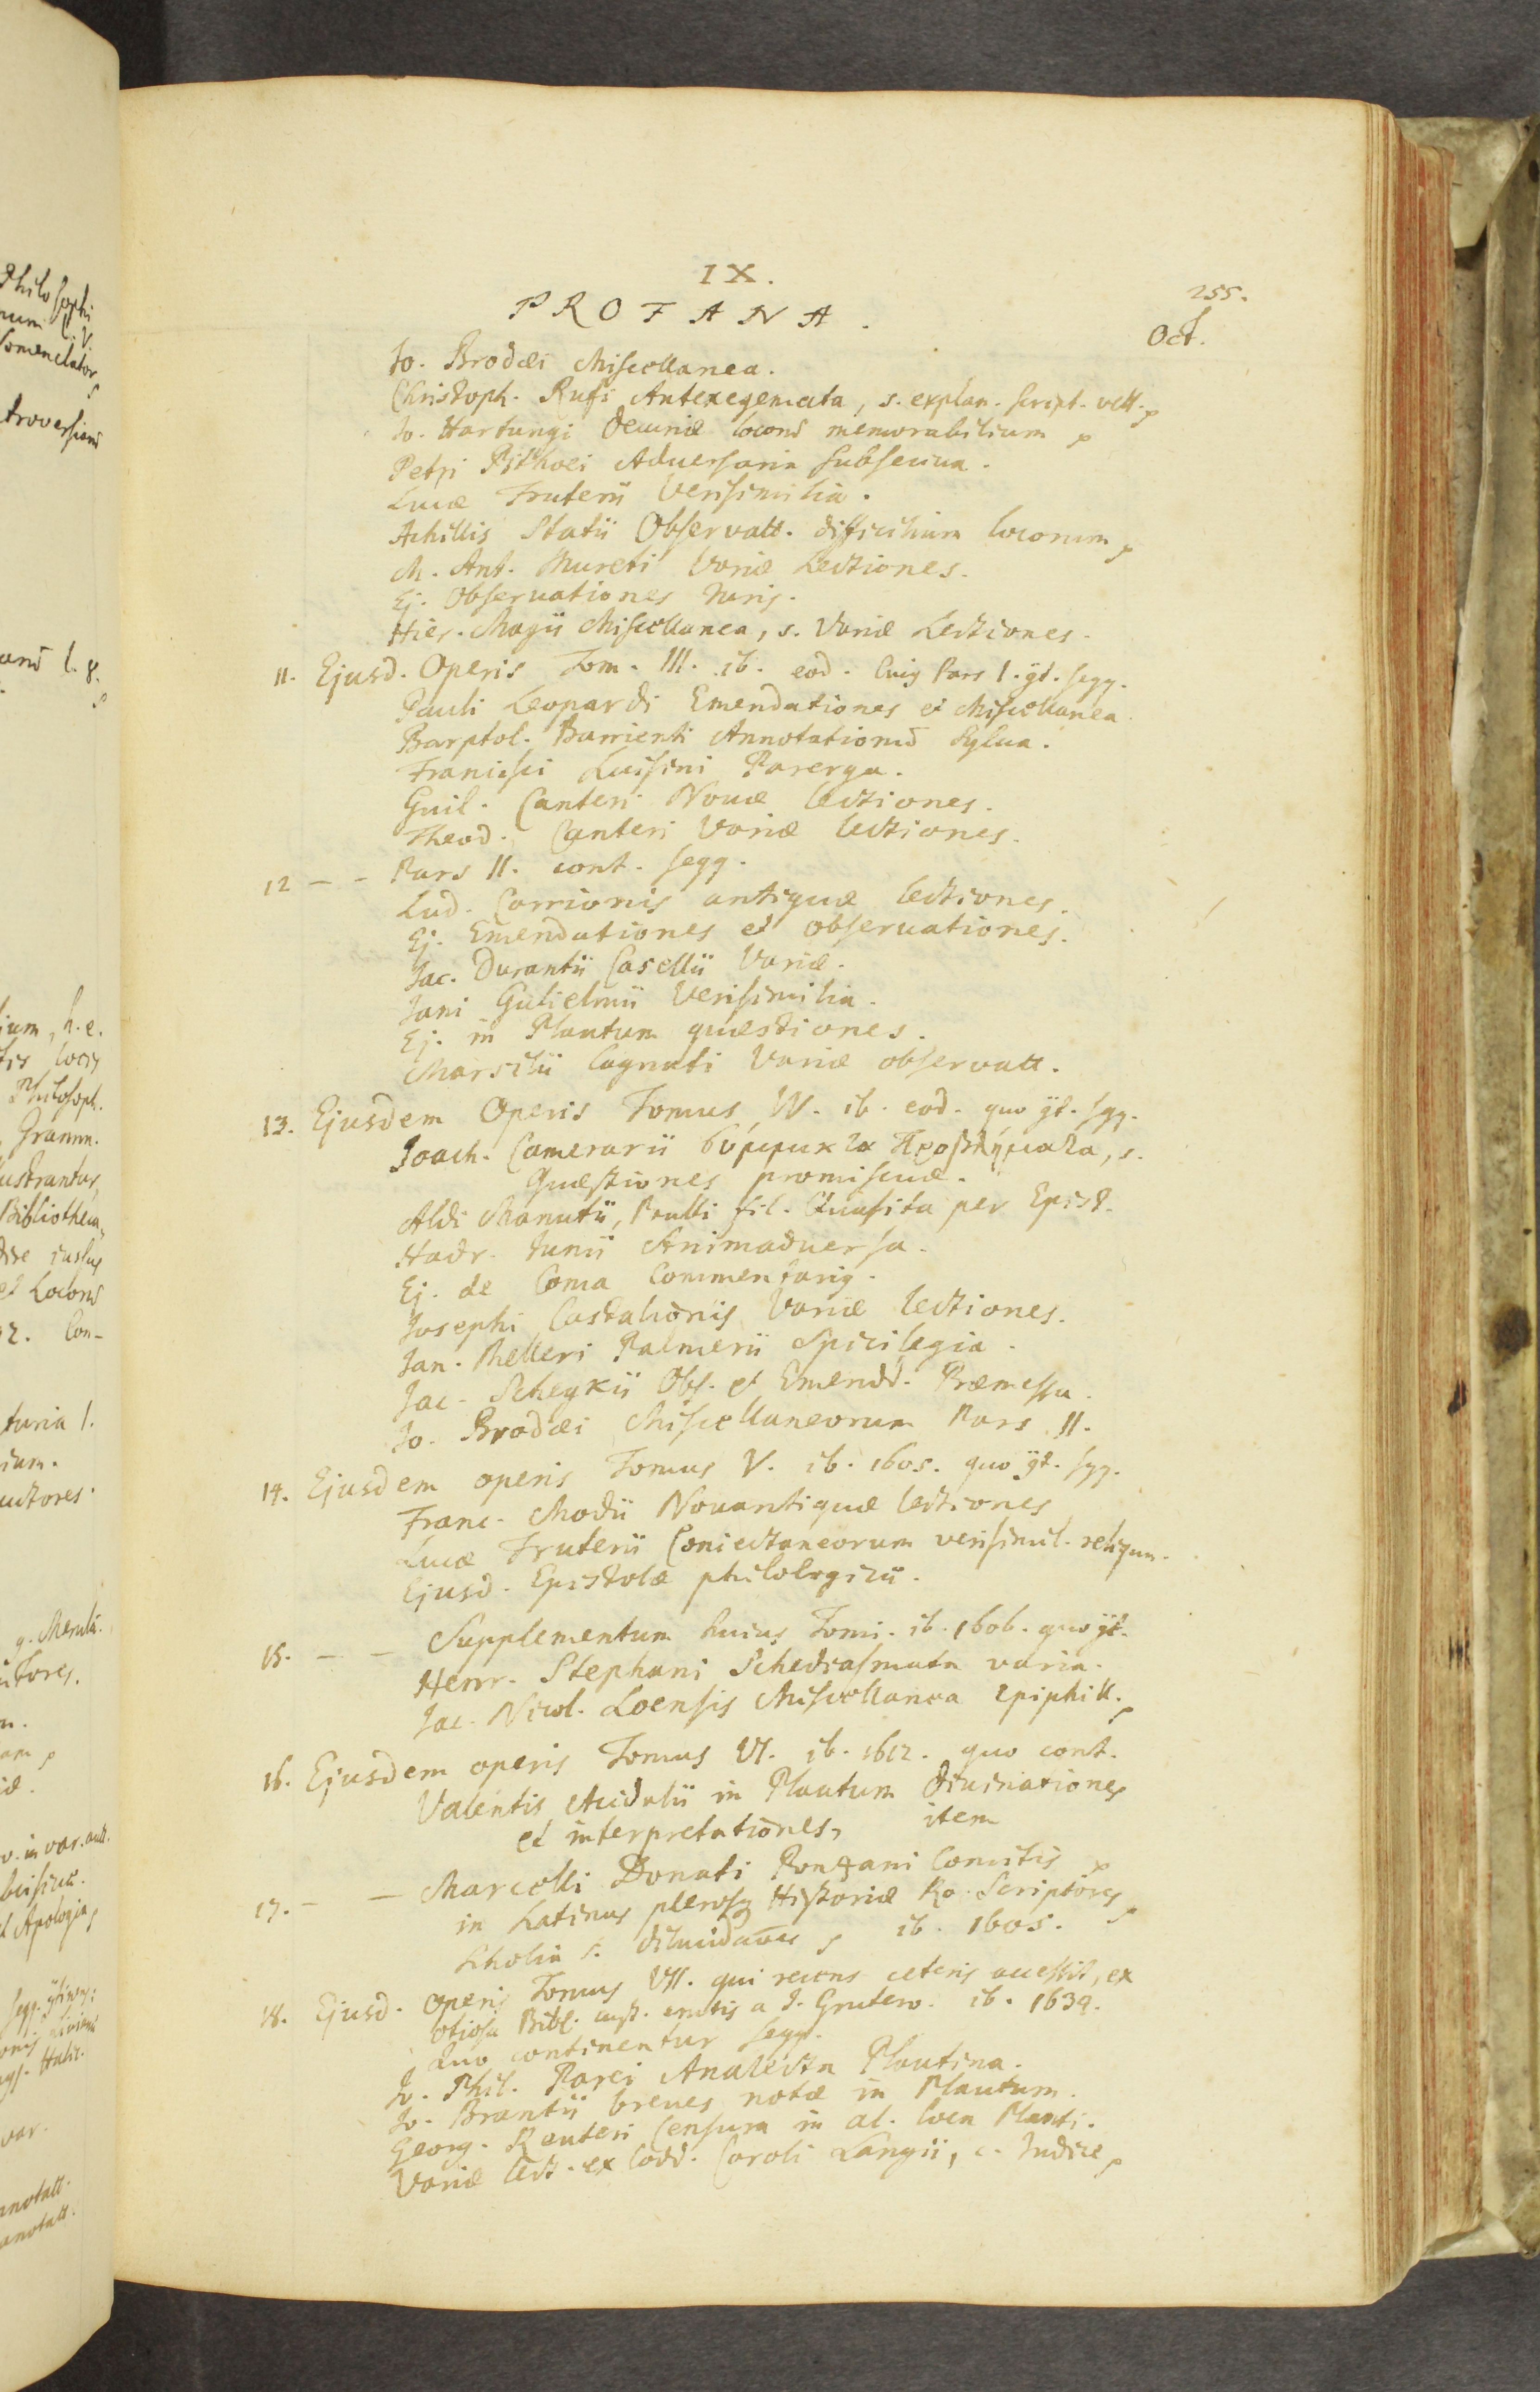 IX.
255.
PROFANA.
Oct.
Jo. Brodæi Miscellanea.
Christoph. Rufi Antexegemata, s. explan. script. vett.
Jo. Hartungi Decuriæ locorū memorabilium
Petri Pithoei Adversaria subseciua.
Lucæ Fruterii Verisimilia.
Achillis Statii Observatt. difficilium locorum
M. Ant. Mureti Variæ Lectiones.
Ej. Observationes Juris.
Hier. Magii Miscellanea, s. Variæ Lectiones.
11. Ejusd. Operis Tom. III. ib. eod. Cuis Pars I. gt. seqq.
Pauli Leopardi Emendationes et Miscellanea.
Barptol. Barrienti Annotationū Sylua.
Francisci Luisini Parerga.
Guil. Canteri Nouæ lectiones.
Theod. Canteri Variæ lectiones.
12 – – Pars II. cont. seqq.
Lud. Carrionis antiquæ lectiones.
Ej. Emendationes et observationes.
Jac. Durantii Casellii Variæ.
Jani Gulielmii Verisimilia.
Ej. in Plautum quæstiones.
Marsilii Cagnati Variæ observatt.
13. Ejusdem Operis Tomus IV. ib. eod. quo gt. sqq.
Joach. Camerarii σύμμικτα Προβλήματα, s.
Quæstiones promiscuæ.
Aldi Manutii, Paulli fil. Quæsita per Epist.
Hadr. Junii Animaduersa.
Ej. de Coma Commentarig.
Josephi Castalionis Variæ lectiones.
Jan. Melleri Palmerii Spicilegia.
Jac. Schegkii Obs. et Emendd. Præmessa.
Jo. Brodæi Miscellaneorum Pars II.
14. Ejusdem operis Tomus V. ib. 1605. quo gt. sqq.
Franc. Modii Nouantiquæ lectiones
Lucæ Fruterii Coniectaneorum verisimil. reliquu.
Ejusd. Epistolæ philologicæ.
15. – – Supplementum huius Tomi. ib. 1606. quo gt.
Henr. Stephani Schediasmata varia.
Jac. Nicol. Loensis Miscellanea Epiphill.
16. Ejusdem operis Tomus VI. ib. 1612. quo cont.
Valentis Acidalii in Plautum diuinationes
et interpretationes, item
17. – – Marcelli Donati Ponzani Comitis
in Latinus plerosq Historiæ Ro. Scriptores
Scholia s. ib. 1605.
18. Ejusd. operis Tomus VII. qui recens ceteris accessit, ex
otiosa Bibl. cust. erutis a J. Grutero. ib. 1634.
Quo continentur seqq.
Jo. Phil. Parei Analecta Plautina.
Jo. Brantii breues notæ in Plautum.
Georg. Reuteri Censura in al. loca Plauti.
Variæ lect. ex Codd. Caroli Langii, c. Indice